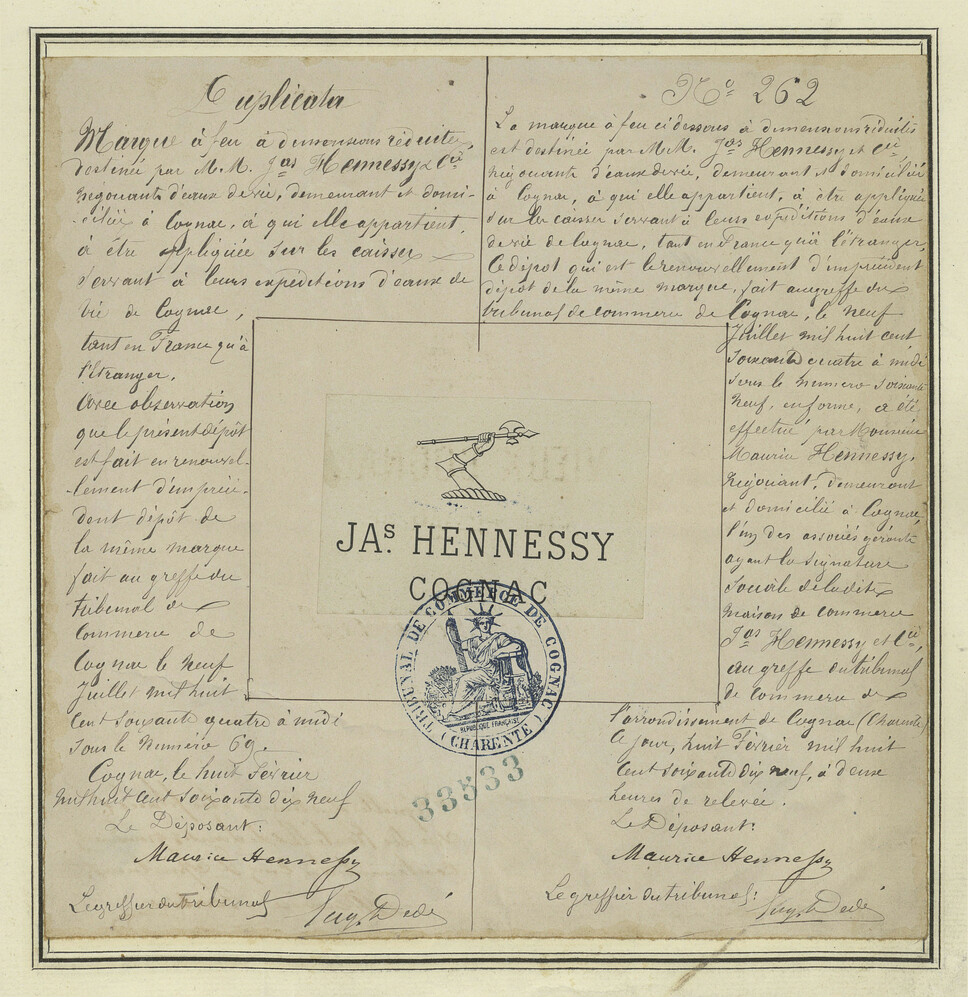 Duplicata
Marque à feu à dimensions réduites,
destinée par M.M. Jas Hennessy & Cie
négociants d'eaux de vie, demeurant et domi-
-ciliés à Cognac, à qui elle appartient,
à être appliquée sur les caisses
servant à leurs expéditions d'eaux de
vie de Cognac,
tant en France qu'à
l'étranger.
Avec observation
que le présent dépôt
est fait en renouvel-
-lement d'un précé-
dent dépôt de
la même marque
fait au greffe du
tribunal de
Commerce de
Cognac le neuf
Juillet mil huit
cent soixante quatre à midi
sous le numéro 69.
Cognac, le huit Février
mil huit cent soixante dix neuf
Le Déposant:
Maurice Hennessy
Le greffier du tribunal
No 262
La marque à feu ci dessous à dimensions réduites
est destinée par M.M. Jas Hennessy et Cie,
négociants d'eaux de vie, demeurant et domiciliés
à Cognac, à qui elle appartient, à être appliquée
sur les caisses servant à leurs expéditions d'eaux
de vie de Cognac, tant en France qu'à l'étranger.
Ce dépôt qui est le renouvellement d'un précédent
dépôt de la même marque, fait au greffe du
tribunal de commerce de Cognac, le neuf
Juillet mil huit cent
soixante quatre à midi
sous le numéro soixante
neuf, en forme, a été
effectué par Monsieur
Maurice Hennessy,
négociant, demeurant
et domicilié à Cognac,
l'un des associés gérants
ayant la signature
sociale de ladite
maison de commerce
Jas Hennessy et Cie,
au greffe du tribunal
de commerce de
l'arrondissement de Cognac (Charente)
Ce jour, huit Février mil huit
cent soixante dix neuf, à deux
heures de relevée.
Le Déposant:
Maurice Hennessy
Le greffier du tribunal:
JAS. HENNESSY
COGNAC
TRIBUNAL DE COMMERCE DE COGNAC
(CHARENTE)
REPUBLIQUE FRANÇAISE
33533